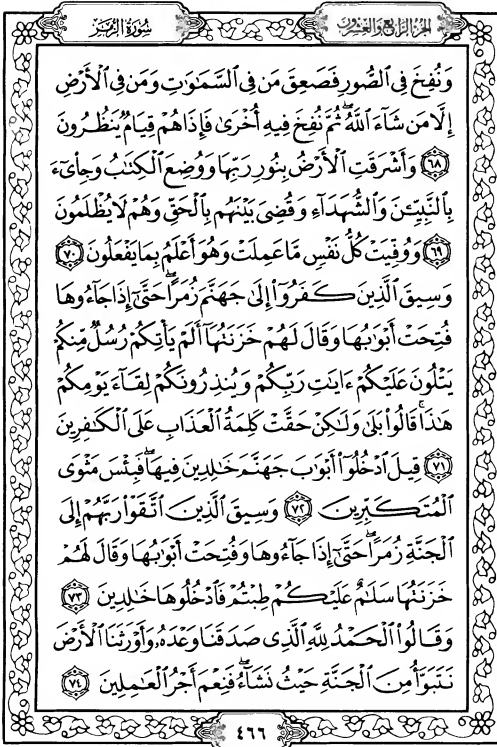 سُورَةُ الزُّمَر
الجزء الرابع والعشرون
وَنُفِخَ فِي ٱلصُّورِ فَصَعِقَ مَن فِي ٱلسَّمَٰوَٰتِ وَمَن فِي ٱلْأَرْضِ
إِلَّا مَن شَآءَ ٱللَّهُ ۖ ثُمَّ نُفِخَ فِيهِ أُخْرَىٰ فَإِذَا هُمْ قِيَامٌ يَنظُرُونَ
﴿٦٨﴾ وَأَشْرَقَتِ ٱلْأَرْضُ بِنُورِ رَبِّهَا وَوُضِعَ ٱلْكِتَٰبُ وَجِا۟ىٓءَ
بِٱلنَّبِيِّـۧنَ وَٱلشُّهَدَآءِ وَقُضِيَ بَيْنَهُم بِٱلْحَقِّ وَهُمْ لَا يُظْلَمُونَ
﴿٦٩﴾ وَوُفِّيَتْ كُلُّ نَفْسٍ مَّا عَمِلَتْ وَهُوَ أَعْلَمُ بِمَا يَفْعَلُونَ ﴿٧٠﴾
وَسِيقَ ٱلَّذِينَ كَفَرُوٓا۟ إِلَىٰ جَهَنَّمَ زُمَرًا ۖ حَتَّىٰٓ إِذَا جَآءُوهَا
فُتِحَتْ أَبْوَٰبُهَا وَقَالَ لَهُمْ خَزَنَتُهَآ أَلَمْ يَأْتِكُمْ رُسُلٌ مِّنكُمْ
يَتْلُونَ عَلَيْكُمْ ءَايَٰتِ رَبِّكُمْ وَيُنذِرُونَكُمْ لِقَآءَ يَوْمِكُمْ
هَٰذَا ۚ قَالُوا۟ بَلَىٰ وَلَٰكِنْ حَقَّتْ كَلِمَةُ ٱلْعَذَابِ عَلَى ٱلْكَٰفِرِينَ
﴿٧١﴾ قِيلَ ٱدْخُلُوٓا۟ أَبْوَٰبَ جَهَنَّمَ خَٰلِدِينَ فِيهَا ۖ فَبِئْسَ مَثْوَى
ٱلْمُتَكَبِّرِينَ ﴿٧٢﴾ وَسِيقَ ٱلَّذِينَ ٱتَّقَوْا۟ رَبَّهُمْ إِلَى
ٱلْجَنَّةِ زُمَرًا ۖ حَتَّىٰٓ إِذَا جَآءُوهَا وَفُتِحَتْ أَبْوَٰبُهَا وَقَالَ لَهُمْ
خَزَنَتُهَا سَلَٰمٌ عَلَيْكُمْ طِبْتُمْ فَٱدْخُلُوهَا خَٰلِدِينَ ﴿٧٣﴾
وَقَالُوا۟ ٱلْحَمْدُ لِلَّهِ ٱلَّذِى صَدَقَنَا وَعْدَهُۥ وَأَوْرَثَنَا ٱلْأَرْضَ
نَتَبَوَّأُ مِنَ ٱلْجَنَّةِ حَيْثُ نَشَآءُ ۖ فَنِعْمَ أَجْرُ ٱلْعَٰمِلِينَ ﴿٧٤﴾
٤٦٦